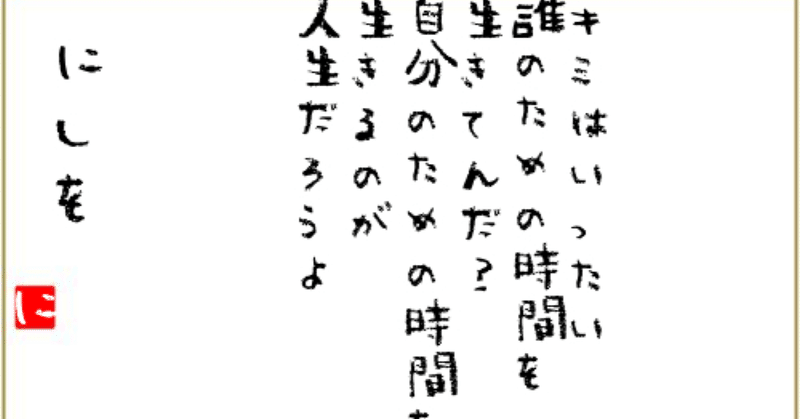 キミはいったい
誰のための時間を
生きてんだ?
自分のための時間を
生きるのが
人生だろうよ
にしを
に